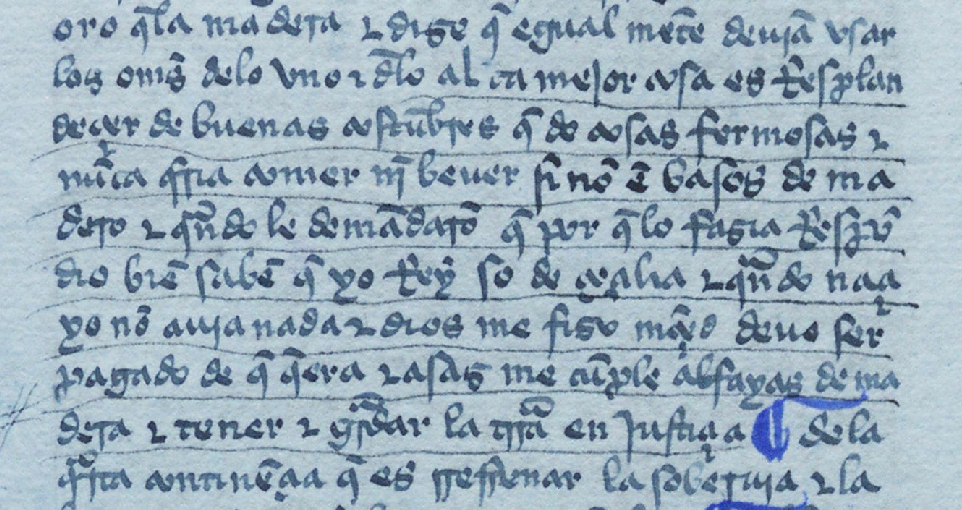 oro q̃la madera ⁊ dise q̃ egual mẽte deuiã vsar
los oms̃ delo vno ⁊ dl̃o al ca mejor cosa es Resplan
deçer de buenas costũbres q̃ de cosas fermosas ⁊
nũca q̃ria comer nj̃ beuer si nõ ẽ basos de ma
dero ⁊ qñdo le demãdarõ q̃ por q̃ lo fasia Respõ
dio biẽ sabẽ q̃ yo Rey so de çeçilia ⁊ qñdo naçi
yo nõ auia nada ⁊ dios me fiso mȩ̃d deuo ser
pagado de q̃ q̃era ⁊ asas me cũple abfayas de ma
dera ⁊ tener ⁊ gr̃dar la trr̃a en justiçia ¶ de la
q̃rta continẽçia q̃ es rrefrenar la soberuia ⁊ la